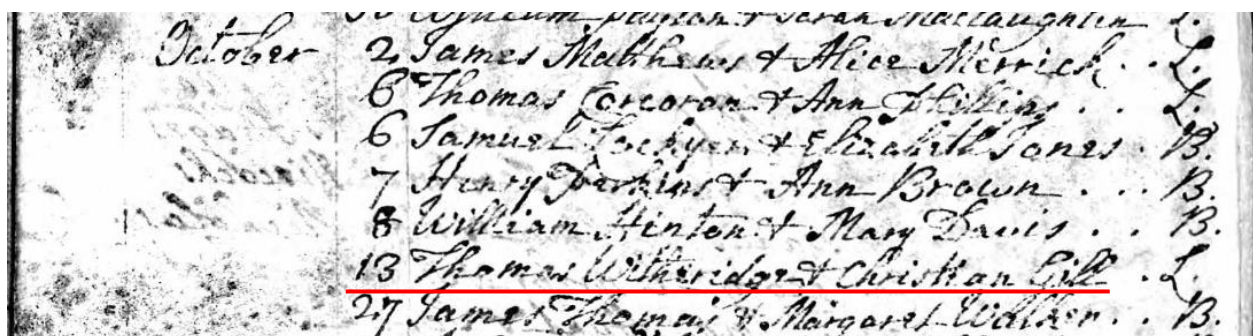 & Sarah Maclaughlin L.
October 2 James Matthews & Alice Merrick . . L.
6 Thomas Corcoran & Ann . . L.
6 Samuel Lockyer & Elizabeth Jones . B.
7 Henry Perkins & Ann Brown . . . B.
8 William Hinton & Mary Davis . . B.
13 Thomas Witheridge & Christian Gill . L.
27 James Thomas & Margaret Walker . . B.